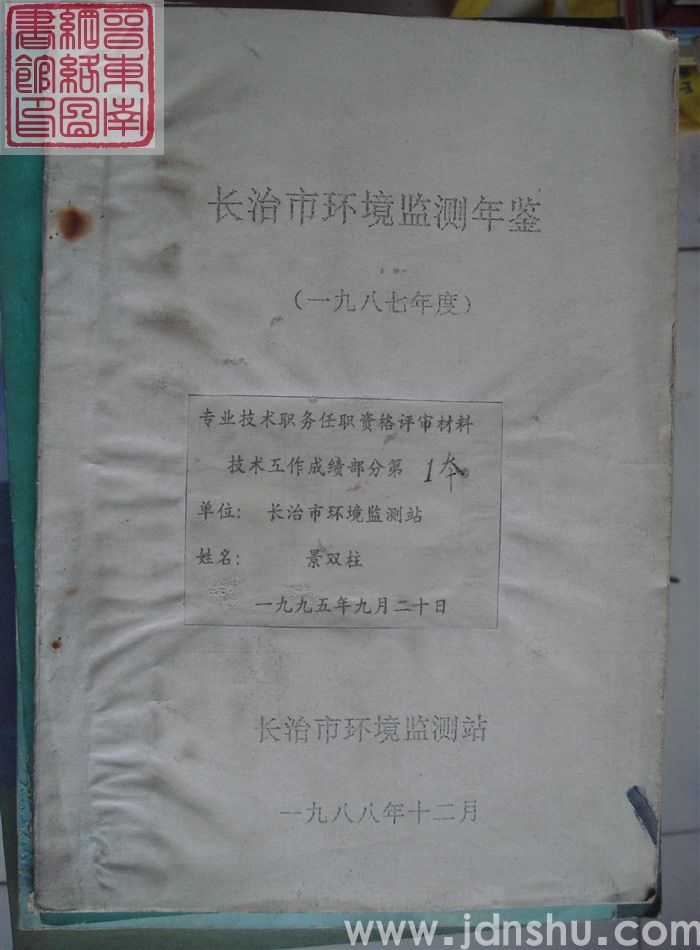 晋东南
網絡圖
書館印
长治市环境监测年鉴
(一九八七年度)
专业技术职务任职资格评审材料
技术工作成绩部分第 1本
单位: 长治市环境监测站
姓名: 景双柱
一九九五年九月二十日
长治市环境监测站
一九八八年十二月
www.jdnshu.com